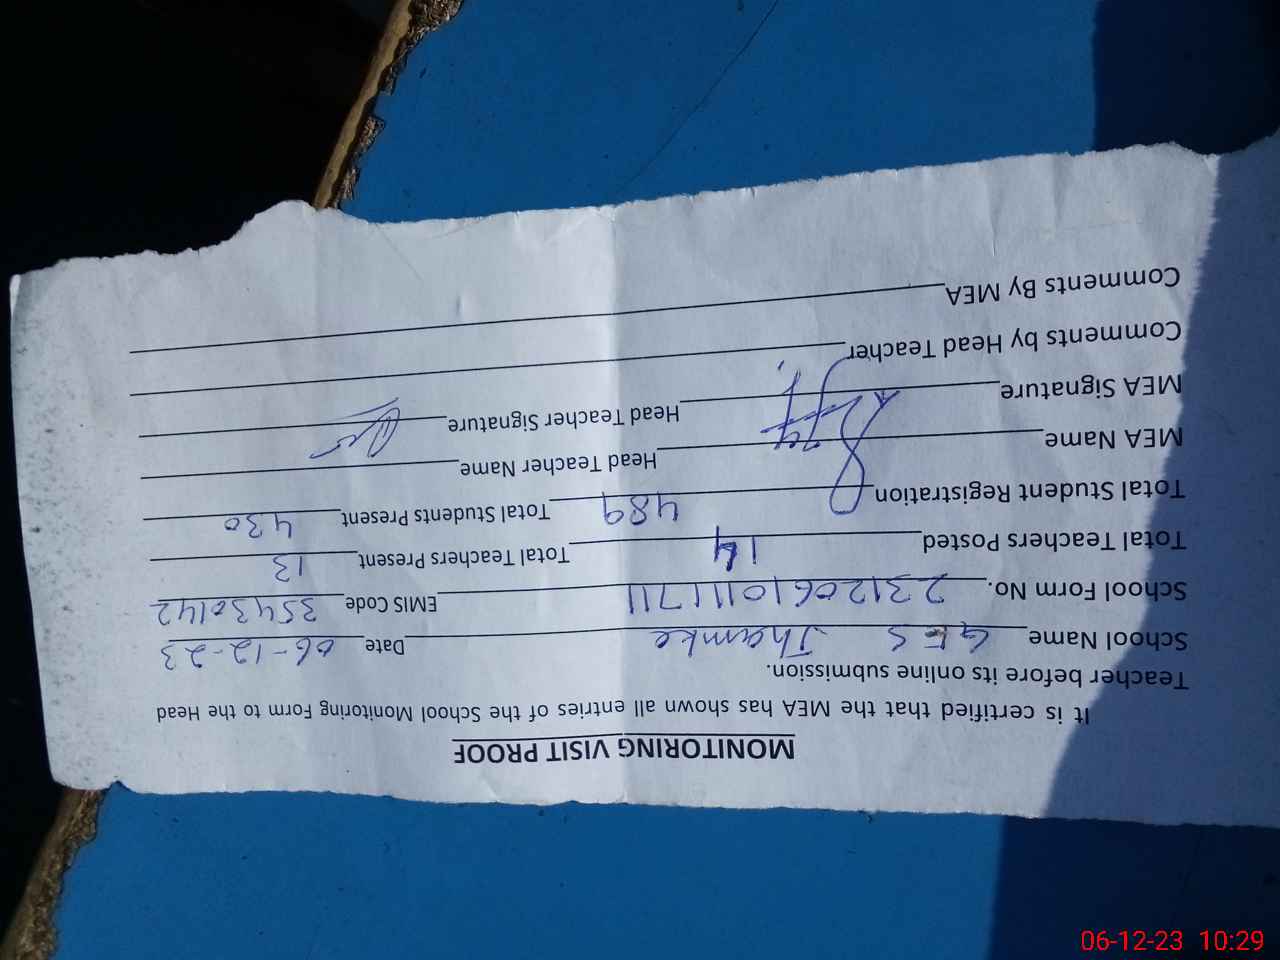 MONITORING VISIT PROOF
It is certified that the MEA has shown all entries of the School Monitoring Form to the Head
Teacher before its online submission.
School Name GES Jhamke Date 06-12-23
School Form No. 2312061011711 EMIS Code 35430142
Total Teachers Posted 14 Total Teachers Present 13
Total Student Registration 489 Total Students Present 430
MEA Name Head Teacher Name
MEA Signature Head Teacher Signature
Comments by Head Teacher
Comments By MEA
06-12-23 10:29